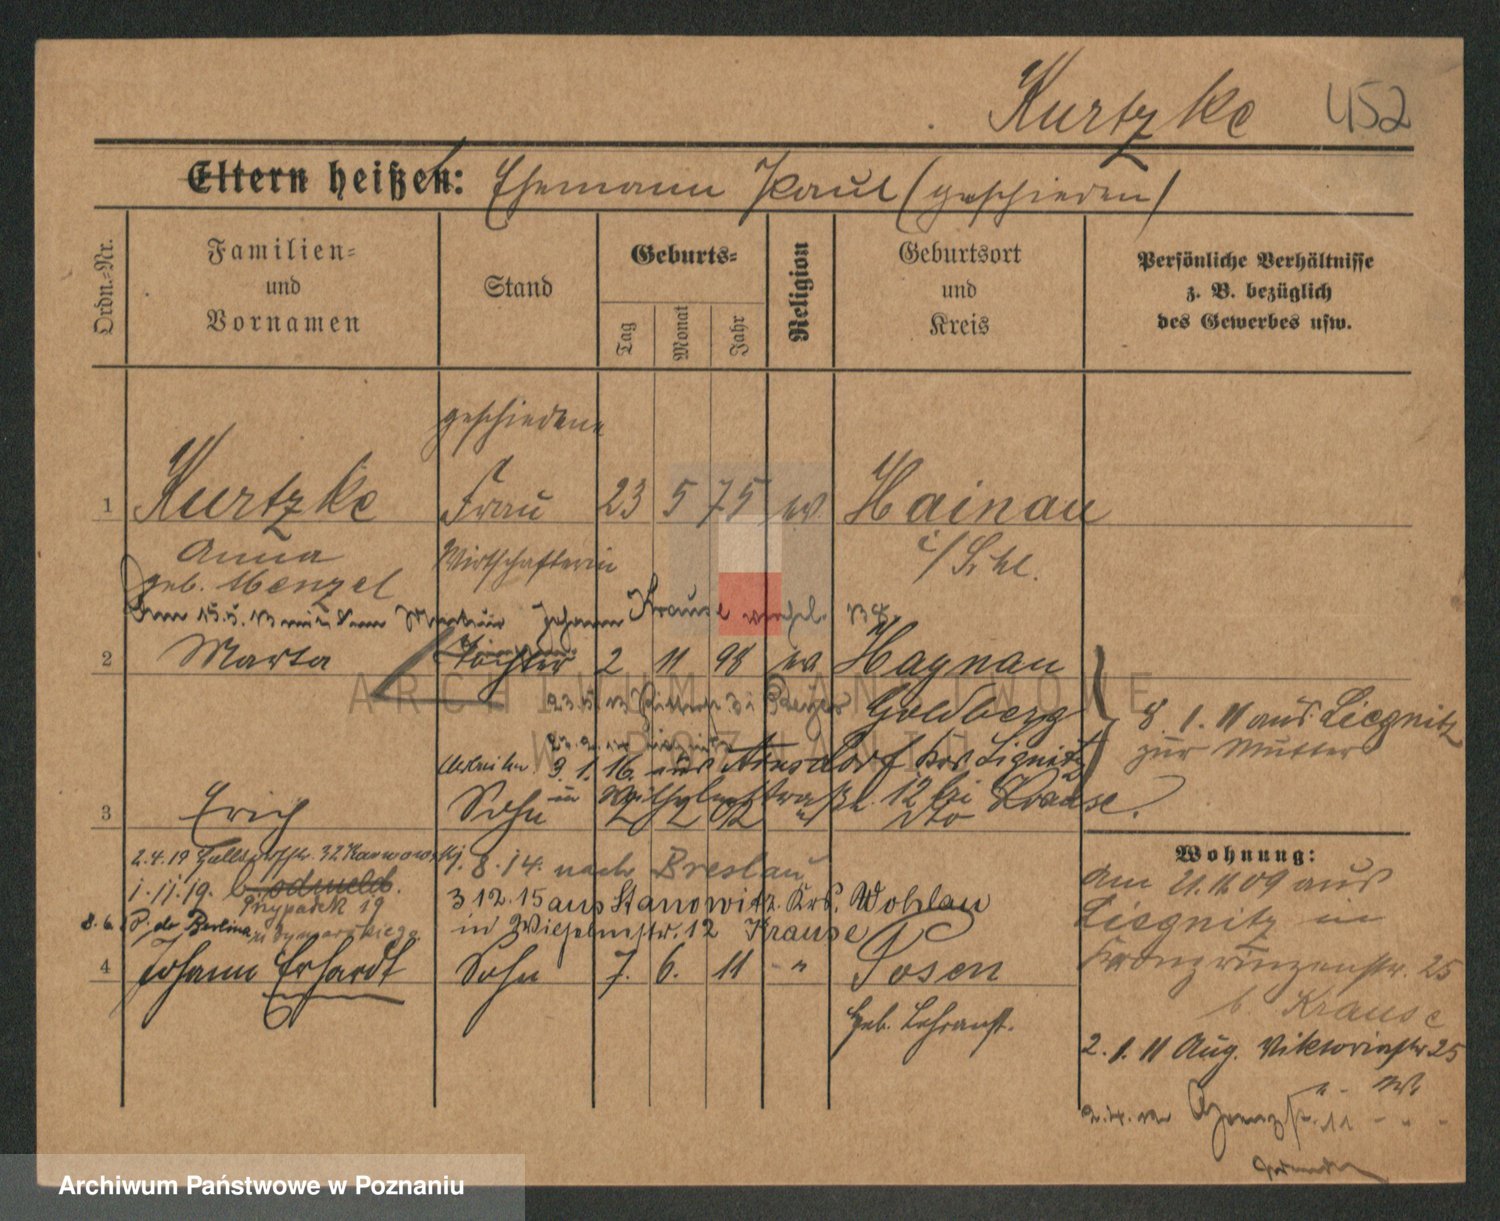 Kurtzke 452
Eltern heißen: Ehemann Paul (geschieden)
Ordn.-Nr.
Familien- und Vornamen
Stand
Geburts-
Tag
Monat
Jahr
Religion
Geburtsort und Kreis
Persönliche Verhältnisse
z. B. bezüglich
des Gewerbes usw.
geschiedene
1 Kurtzke Frau 23 5 75 ev Hainau
Anna Wirtschafterin i/Schl.
geb. Menzel
Johann Krause
2 Marta Tochter 2 11 98 ev Haynau
Goldberg
8. 1. 11 aus Liegnitz
zur Mutter
9. 1. 16. aus Arnsdorf Krs. Lignitz
in Wilhelmstraße 12 bei Krause.
3 Erich Sohn 2 2 02 " dto
Wohnung:
2.4.19 32 Karwowskj.
1. 8. 14. nach Breslau
1.11.19.
Przypadek 19
3 12. 15 aus Stanowitz. Krs. Wohlau
in Wilhelmstr. 12 Krause
am 21.11.09 aus
Liegnitz in
Kronprinzenstr. 25
b. Krause
4 Johann Erhardt Sohn 7. 6. 11 - " Posen
Heb. Lehranst.
2. 1. 11 Aug. Viktoriastr 25
ARCHIWUM PAŃSTWOWE
W POZNANIU
Archiwum Państwowe w Poznaniu